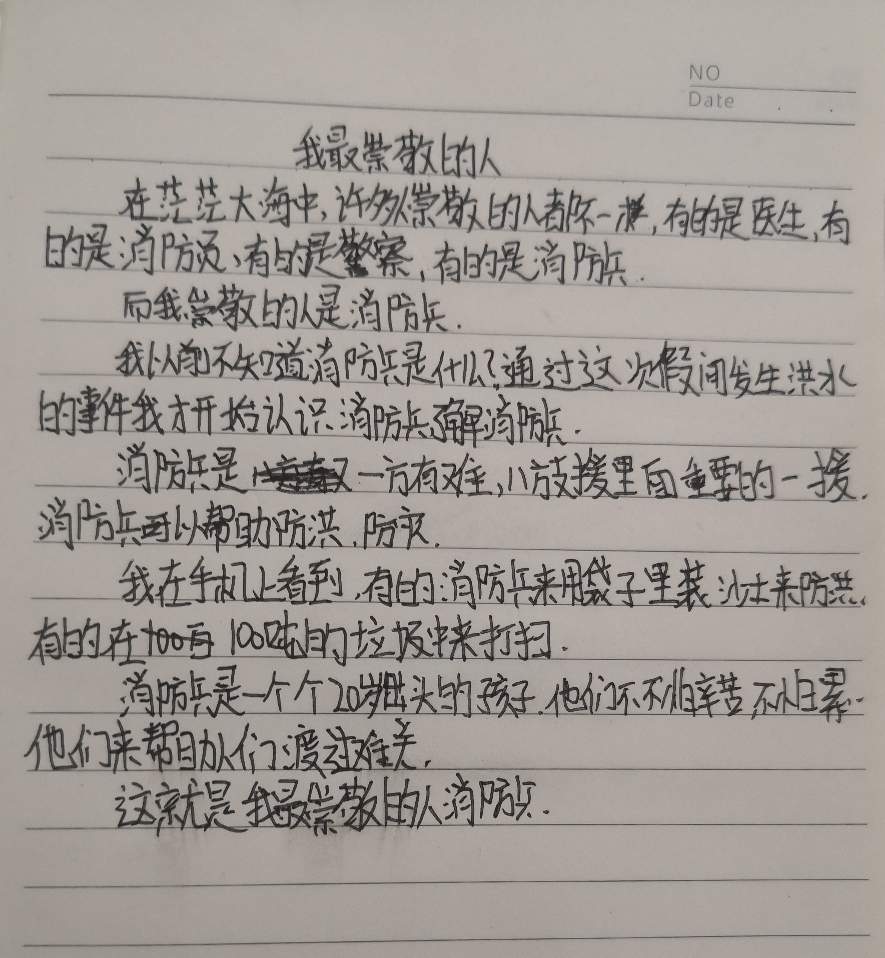 NO
Date
我最崇敬的人
在茫茫大海中,许多人崇敬的人都不一样,有的是医生,有
的是消防员、有的是警察,有的是消防兵.
而我崇敬的人是消防兵.
我以前不知道消防兵是什么?通过这次假间发生洪水
的事件我才开始认识消防兵了解消防兵.
消防兵是一方有难,八方支援里面重要的一援.
消防兵可以帮助防洪、防灾.
我在手机上看到,有的消防兵来用袋子里装沙土来防洪、
有的在100吨的垃圾中来打扫.
消防兵是一个个20岁出头的孩子.他们不不怕辛苦,不怕累.
他们来帮助人们渡过难关.
这就是我最崇敬的人消防兵.